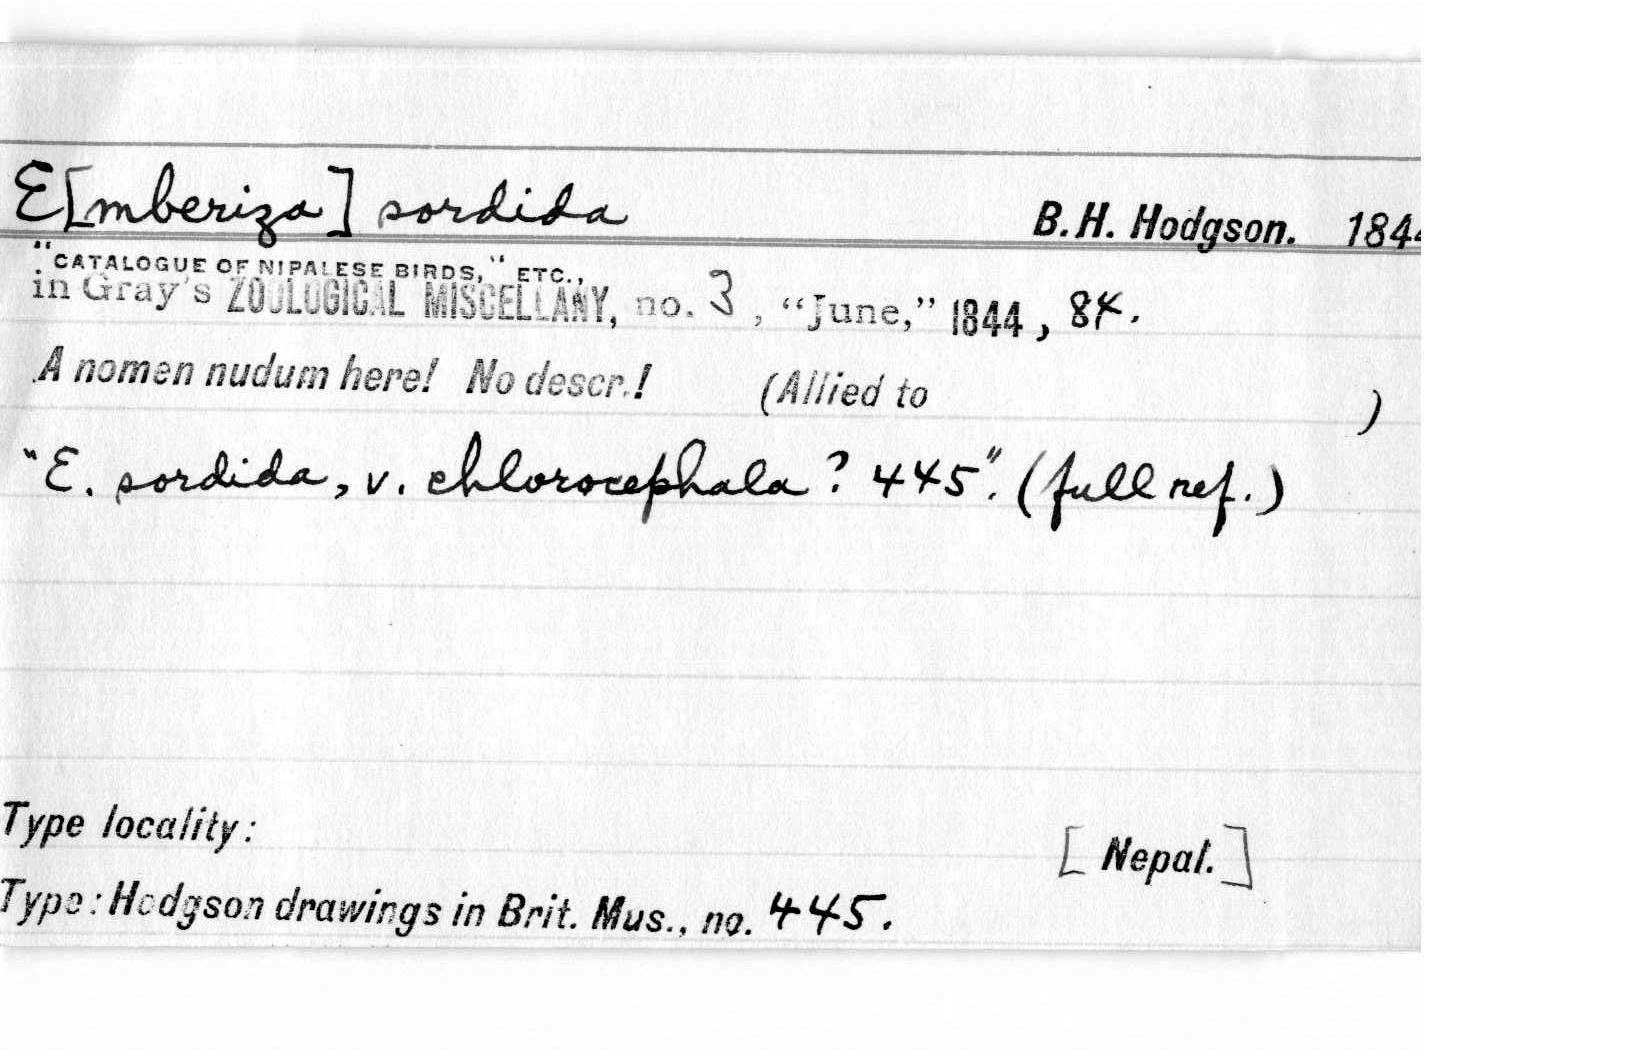 E[mberiza] sordida B.H. Hodgson. 1844
"CATALOGUE OF NIPALESE BIRDS," ETC.,
in Gray's ZOOLOGICAL MISCELLANY, no. 3, "June," 1844, 84.
A nomen nudum here! No descr.! (Allied to )
"E. sordida, v. chlorocephala? 445". (full ref.)
Type locality: [Nepal.]
Type: Hodgson drawings in Brit. Mus., no. 445.